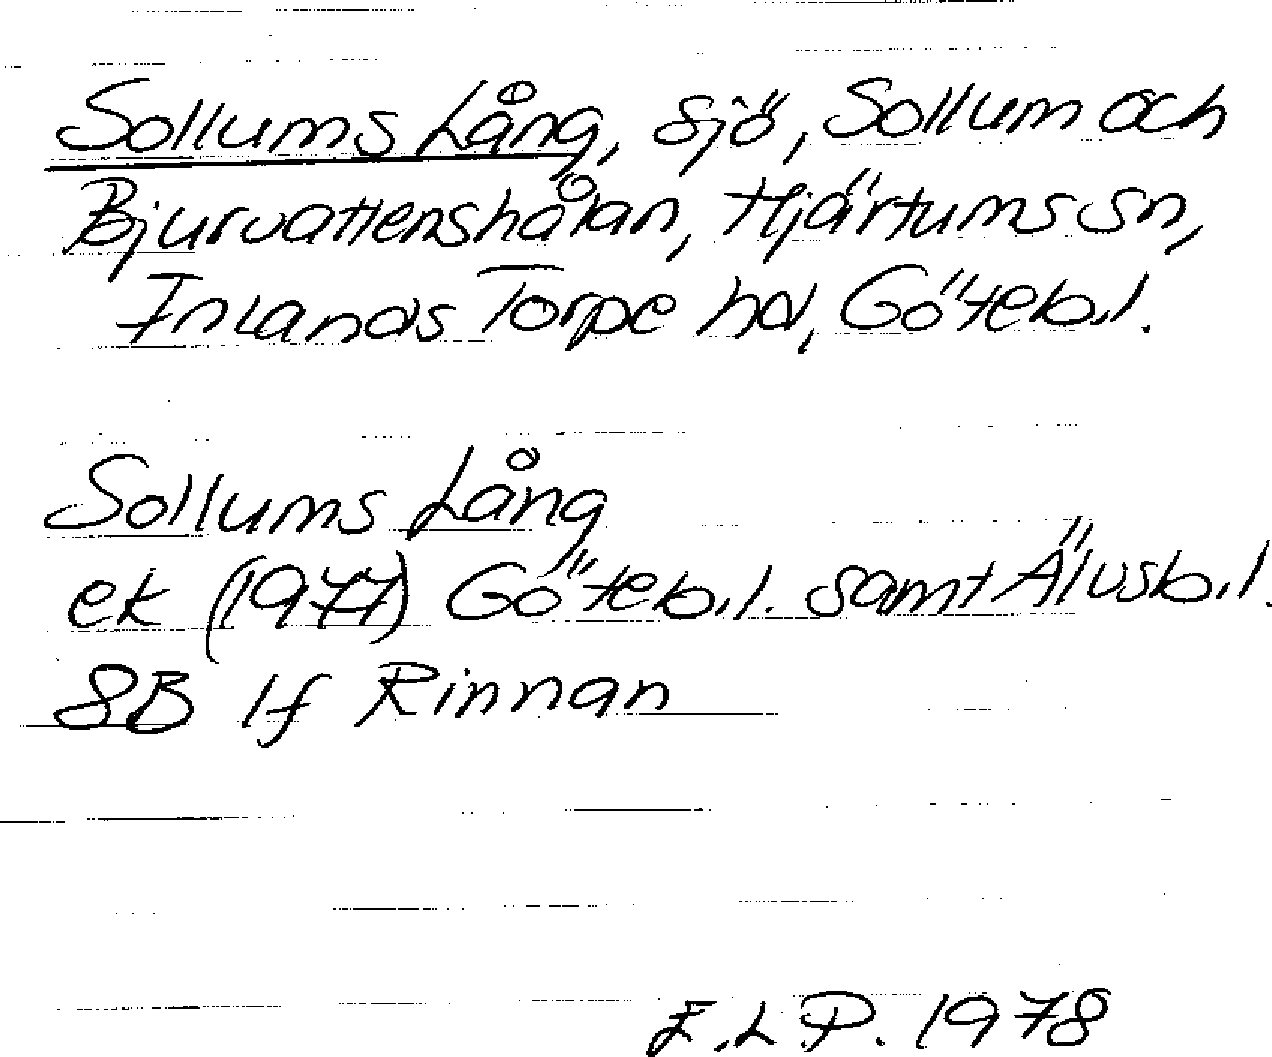 Sollums Lång, sjö, Sollum och
Bjurvattenshålan, Hjärtums sn,
Inlands Torpe hd, Göteb.l.
Sollums Lång
ek (1977) Göteb.l. samt Älvsb.l.
8B 1f Rinnan
E.L.P. 1978